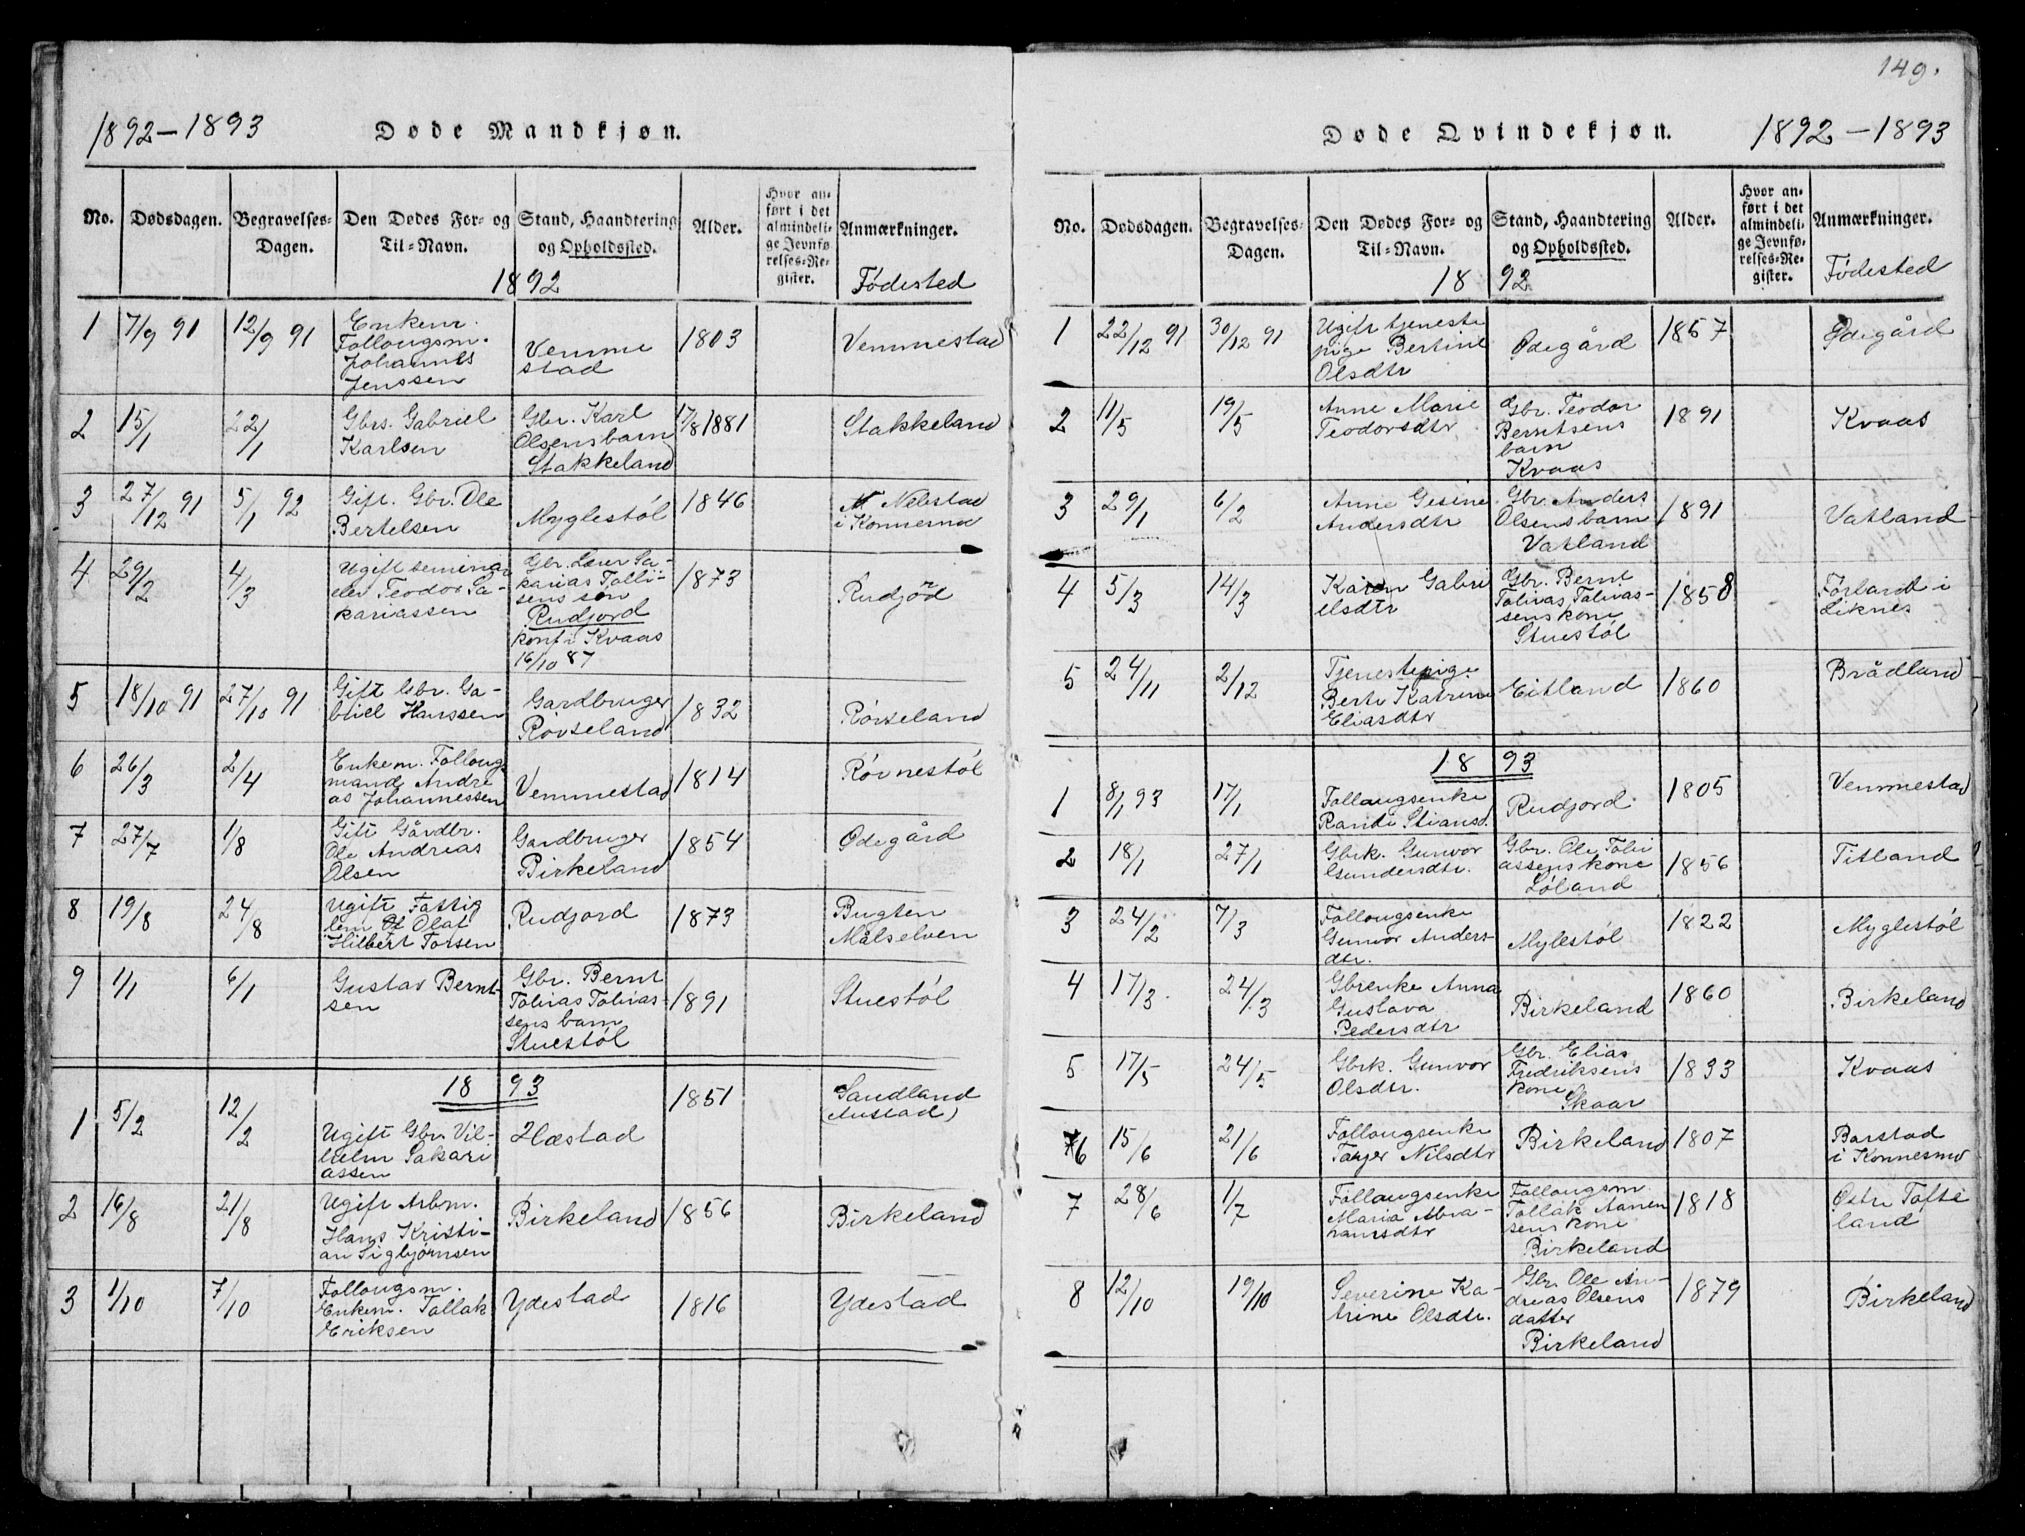 1892-1893
Døde Mandkjøn.
No.
Dødsdagen.
Begravelses-
Dagen.
Den Dødes For- og
Til-Navn.
Stand, Haandtering
og Opholdssted.
Alder.
Hvor an-
ført i det
almindeli-
ge Jevnfø
relses-Re-
gister.
Anmærkninger.
Fødested
1892
1
7/9 91
12/9 91
Enkem.
Follougsm.
Johannes
Jenssen
Vemme
stad
1803
Vemmestad
2
15/1
22/1
Gbrs. Gabriel
Karlsen
Gbr. Karl
Olsens barn
Stakkeland
17/8 1881
Stakkeland
3
27/12 91
5/1 92
Gift. Gbr. Ole
Bertelsen
Myglestøl
1846
Nelestad
i Konnesmo
4
29/2
4/3
Ugift seminar
elev Teodor Sa-
kariassen
Gbr. Lærer Sa-
karias Tolli-
sens søn
Rudjord
konf i Kvaas
16/10 87
1873
Rudjord
5
18/10 91
27/10 91
Gift Gbr. Ga-
briel Hanssen
Gardbruger
Røvseland
1832
Røvseland
6
26/3
2/4
Enkem. Folloug
mand Andre
as Johannessen
Vemmestad
1814
Røvnestøl
7
27/7
1/8
Gift Gårdbr.
Ole Andreas
Olsen
Gardbruger
Birkeland
1854
Ødegård
8
19/8
24/8
Ugift Fattig
lem Olaf
Hilbert Torsen
Rudjord
1873
Bugten
Målselven
9
1/1
6/1
Gustav Bernt-
sen
Gbr. Bernt
Tobias Tobias-
sens barn
Stuestøl
1891
Stuestøl
1893
1
5/2
12/2
Ugift Gbr. Vil-
helm Sakari
assen
Hæstad
1851
Sandland
(Austad)
2
16/8
21/8
Ugift Arbm.
Hans Kristi-
an Sigbjørnsen
Birkeland
1856
Birkeland
3
1/10
7/10
Follougsm.
Enkem. Tallak
Eriksen
Ydestad
1816
Ydestad
149.
Døde Qvindekjøn.
1892-1893
No.
Dødsdagen.
Begravelses-
Dagen.
Den Dødes For- og
Til-Navn.
Stand, Haandtering
og Opholdssted.
Alder.
Hvor an-
ført i det
almindeli-
ge Jevnfø-
relses-Re-
gister.
Anmærkninger.
Fødested
1892
1
22/12 91
30/12 91
Ugift tjeneste
pige Bertine
Olsdtr
Ødegård
1857
Ødegård
2
11/5
19/5
Anne Marie
Teodorsdtr
Gbr. Teodor
Berntsens
barn
Kvaas
1891
Kvaas
3
29/1
6/2
Anne Gesine
Andersdtr
Gbr. Anders
Olsens barn
Vatland
1891
Vatland
4
5/3
14/3
Karen Gabri
elsdtr
Gbr. Bernt
Tobias Tobias-
sens kone
Stuestøl
1858
Førland i
Liknes
5
24/11
2/12
Tjenestepige
Berte Katrine
Eliasdtr
Eitland
1860
Brådland
1893
1
8/1 93
17/1
Follaugsenke
Randi Stiansd.
Rudjord
1805
Vemmestad
2
18/1
27/1
Gbrk. Gunvor
Gundersdtr.
Gbr. Ole Tobi
assens kone
Løland
1856
Titland
3
24/2
7/3
Follougsenke
Gunvor Anders-
dtr.
Mylestøl
1822
Myglestøl
4
17/3
24/3
Gbrenke Anna
Gustava
Pedersdtr
Birkeland
1860
Birkeland
5
17/5
24/5
Gbrk. Gunvor
Olsdtr.
Gbr. Elias
Fredriksens
kone
Skaar
1833
Kvaas
6
15/6
21/6
Follougsenke
Tarjer Nilsdtr
Birkeland
1807
Barstad
i Konnesmo
7
28/6
1/7
Follaugsenke
Maria Abra-
hamsdtr
Follougsm.
Tollak Aanen
sens kone
Birkeland
1818
Østre Tofte
land
8
12/10
19/10
Severine Ka-
trine Olsdtr.
Gbr. Ole An-
dreas Olsens
datter
Birkeland
1879
Birkeland